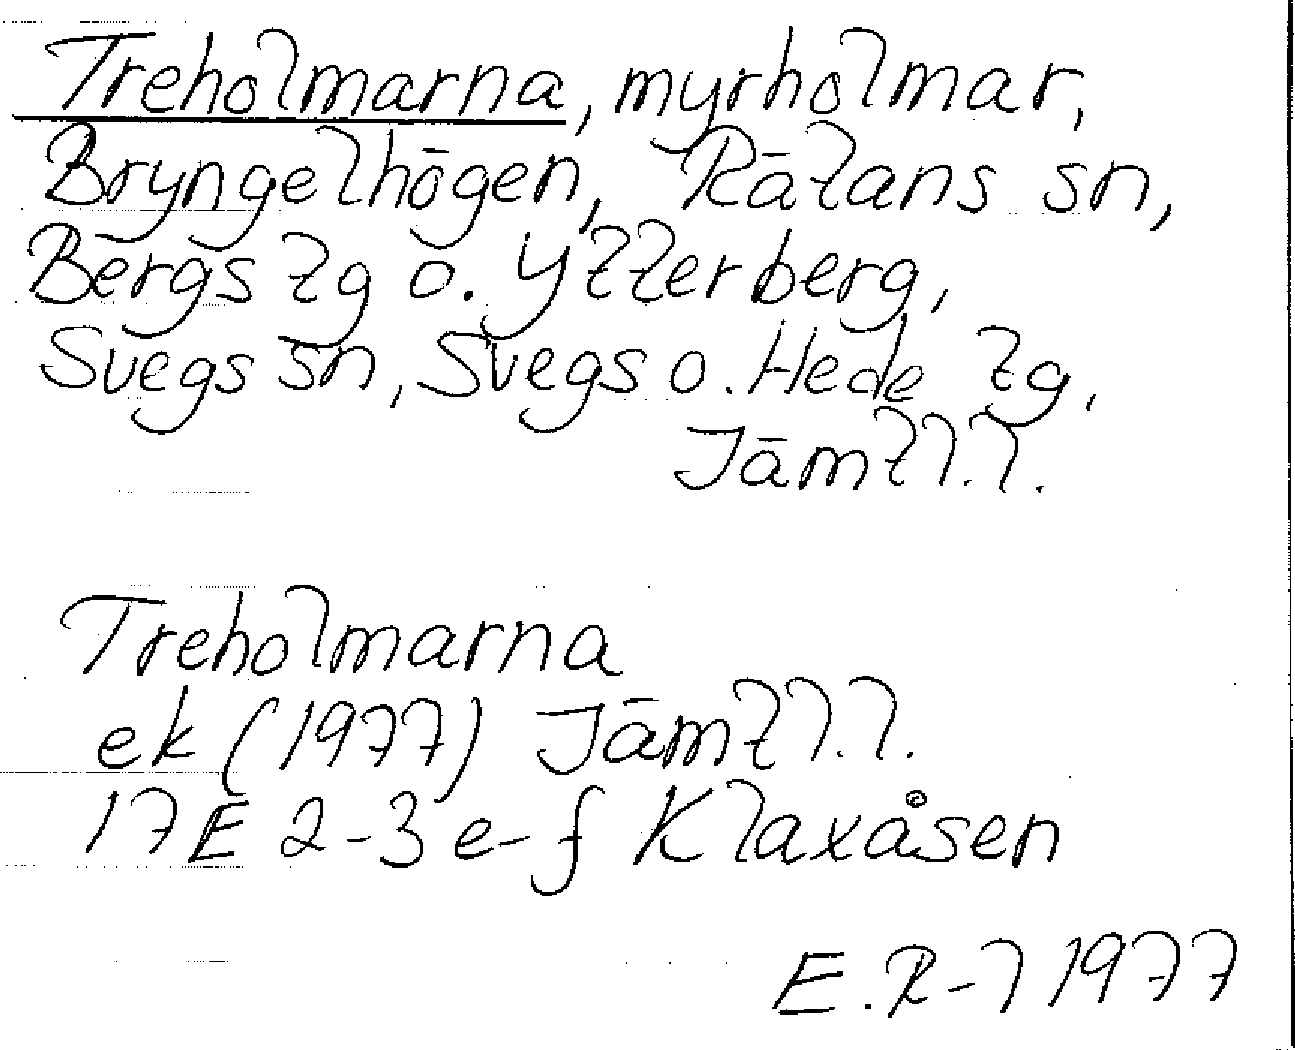 Treholmarna, myrholmar,
Bryngelhögen, Rätans sn,
Bergs tg o. Ytterberg,
Svegs sn, Svegs o. Hede tg,
Jämtl.l.
Treholmarna
ek (1977) Jämtl.l.
17E 2-3 e-f Klaxåsen
E.R-l 1977